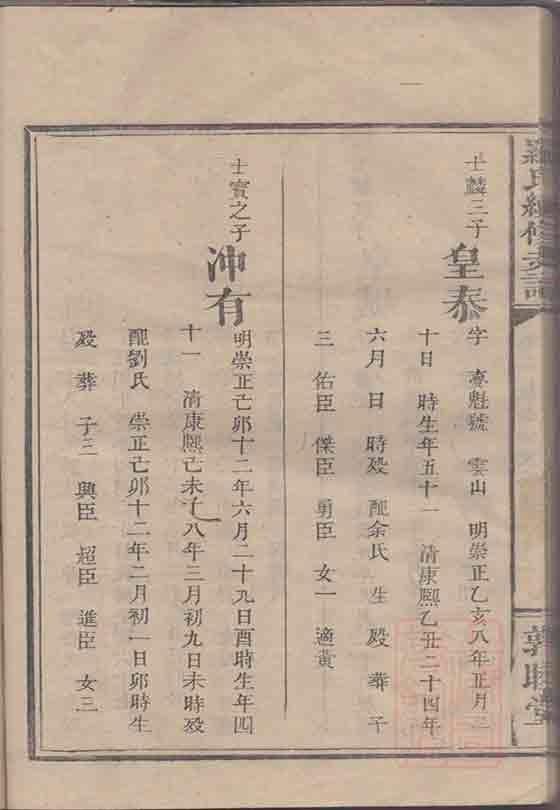 羅氏續修支譜
敦睦堂
士麟三子
皇泰
字 夢魁號 雲山 明崇正乙亥八年正月三
十日 時生年五十一 清康熙乙丑二十四年
六月 日 時殁 配余氏 生 殁 葬 子
三 佑臣 傑臣 勇臣 女一 適黃
士賓之子
沖有
明崇正己卯十二年六月二十九日酉時生年四
十一 清康熙己未十八年三月初九日未時殁
配劉氏 崇正己卯十二年二月初一日卯時生
殁 葬 子三 興臣 超臣 進臣 女三